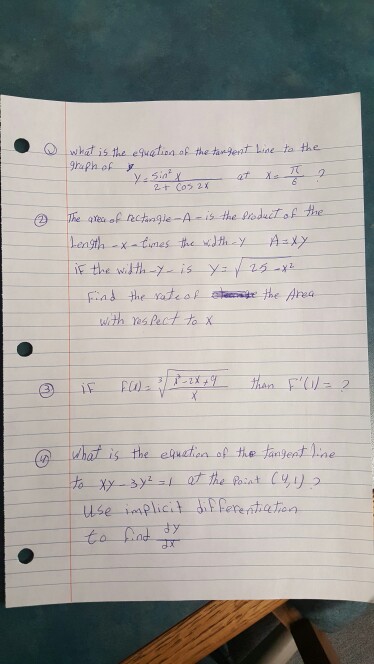 ① what is the equation of the tangent line to the
graph of y = sin² x / 2 + cos 2x at x = π/6 ?
② The area of rectangle - A - is the product of the
Length - x - times the width - y A = xy
iF the width - y - is y = √25 - x²
Find the rate of the Area
with respect to x
③ iF F(x) = ∛(x² - 2x + 9 / x) then F'(1) = ?
④ what is the equation of the tangent line
to xy - 3y² = 1 at the point (4,1) ?
use implicit differentiation
to find dy/dx